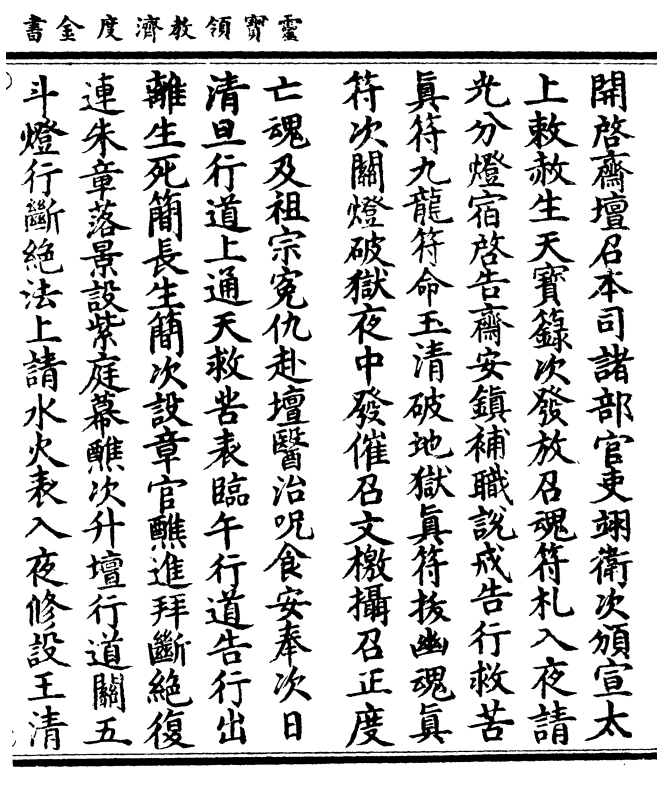 靈寶領教濟度金書
開啓齋壇召本司諸部官吏翊衛次頒宣太
上敕赦生天寶籙次發放召魂符札入夜請
光分燈宿啓告齋安鎮補職說戒告行救苦
眞符九龍符命玉清破地獄眞符拔幽魂眞
符次關燈破獄夜中發催召文檄攝召正度
亡魂及祖宗冤仇赴壇醫治呪食安奉次日
清旦行道上通天救苦表臨午行道告行出
離生死簡長生簡次設章官醮進拜斷絶復
連朱章落景設紫庭幕醮次升壇行道關五
斗燈行斷絶法上請水火表入夜修設王清